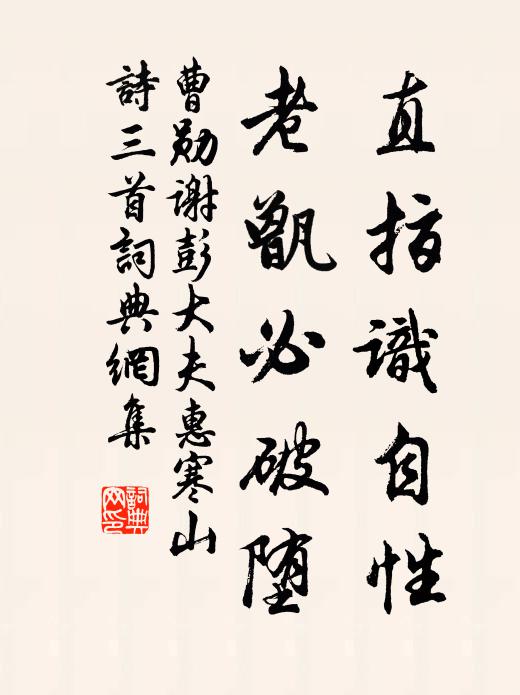 直指識自性
老甑必破堕
曹勛谢彭大夫惠寒山
詩三首詞典網集
詞典網印